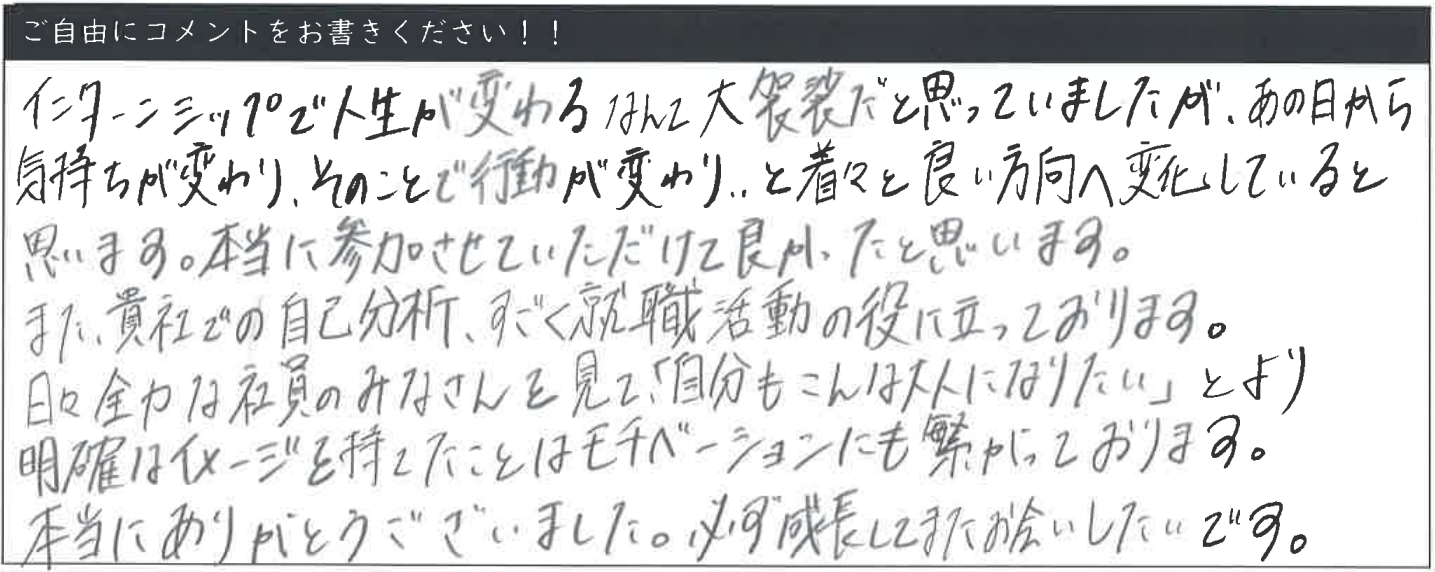 ご自由にコメントをお書きください！！
インターンシップで人生が変わるなんて大袈裟だと思っていましたが、あの日から
気持ちが変わり、そのことで行動が変わり..と着々と良い方向へ変化していると
思います。本当に参加させていただけて良かったと思います。
また、貴社での自己分析、すごく就職活動の役に立っております。
日々全力な社員のみなさんを見て、「自分もこんな大人になりたい」とより
明確なイメージを持てたことはモチベーションにも繋がっております。
本当にありがとうございました。必ず成長してまたお会いしたいです。